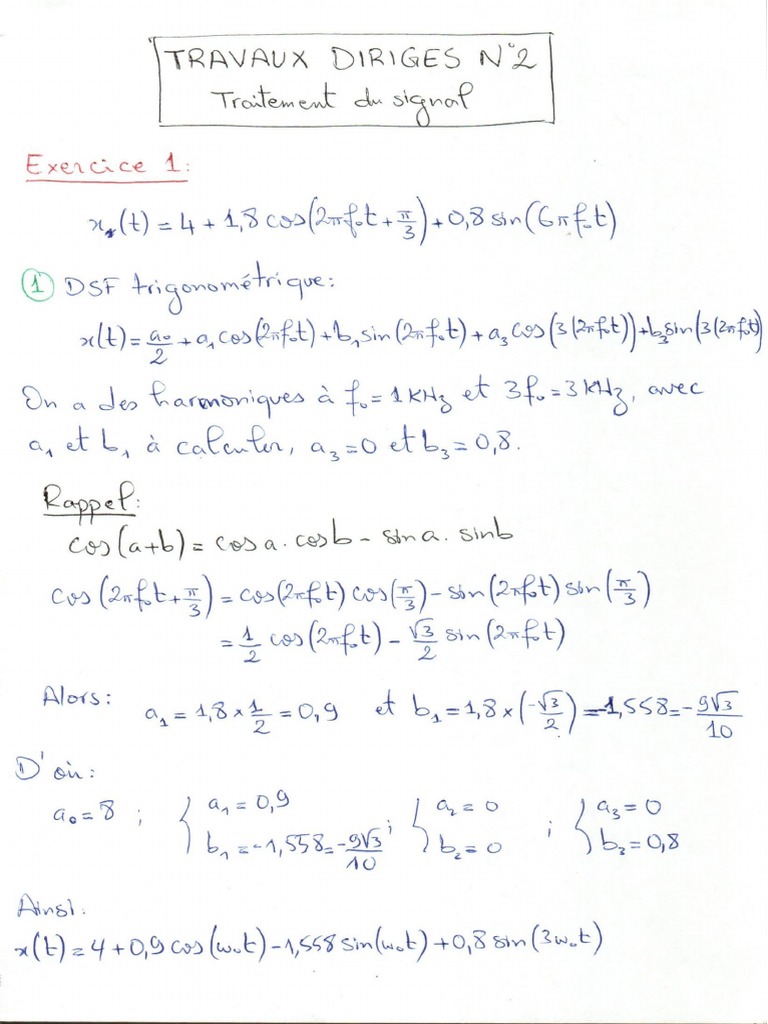 TRAVAUX DIRIGES N°2
Traitement du signal
Exercice 1:
x₁(t) = 4 + 1,8 cos(2πf₀t + π/3) + 0,8 sin(6πf₀t)
① DSF trigonométrique:
x(t) = a₀/2 + a₁ cos(2πf₀t) + b₁ sin(2πf₀t) + a₃ cos(3(2πf₀t)) + b₃ sin(3(2πf₀t)
On a des harmoniques à f₀ = 1 KHz et 3f₀ = 3 KHz, avec
a₁ et b₁ à calculer, a₃ = 0 et b₃ = 0,8.
Rappel:
cos(a+b) = cos a . cos b - sin a . sin b
cos(2πf₀t + π/3) = cos(2πf₀t) cos(π/3) - sin(2πf₀t) sin(π/3)
= 1/2 cos(2πf₀t) - √3/2 sin(2πf₀t)
Alors: a₁ = 1,8 × 1/2 = 0,9 et b₁ = 1,8 × (-√3/2) = -1,558 = - 9√3/10
D'où:
a₀ = 8 ; { a₁ = 0,9 ; { a₂ = 0 ; { a₃ = 0
b₁ = -1,558 = - 9√3/10 b₂ = 0 b₃ = 0,8
Ainsi:
x(t) = 4 + 0,9 cos(ω₀t) - 1,558 sin(ω₀t) + 0,8 sin(3ω₀t)